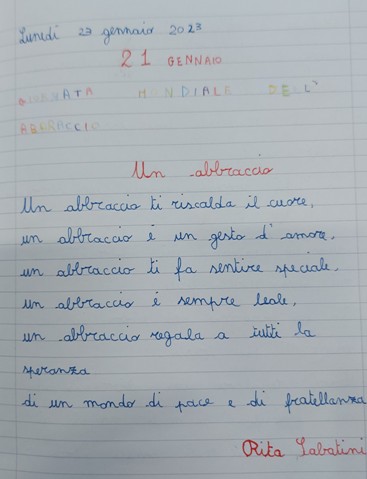 Lunedì 23 gennaio 2023
21 GENNAIO
GIORNATA MONDIALE DELL'
ABBRACCIO
Un abbraccio
Un abbraccio ti riscalda il cuore,
un abbraccio è un gesto d'amore,
un abbraccio ti fa sentire speciale,
un abbraccio è sempre leale,
un abbraccio regala a tutti la
speranza
di un mondo di pace e di fratellanza
Rita Sabatini